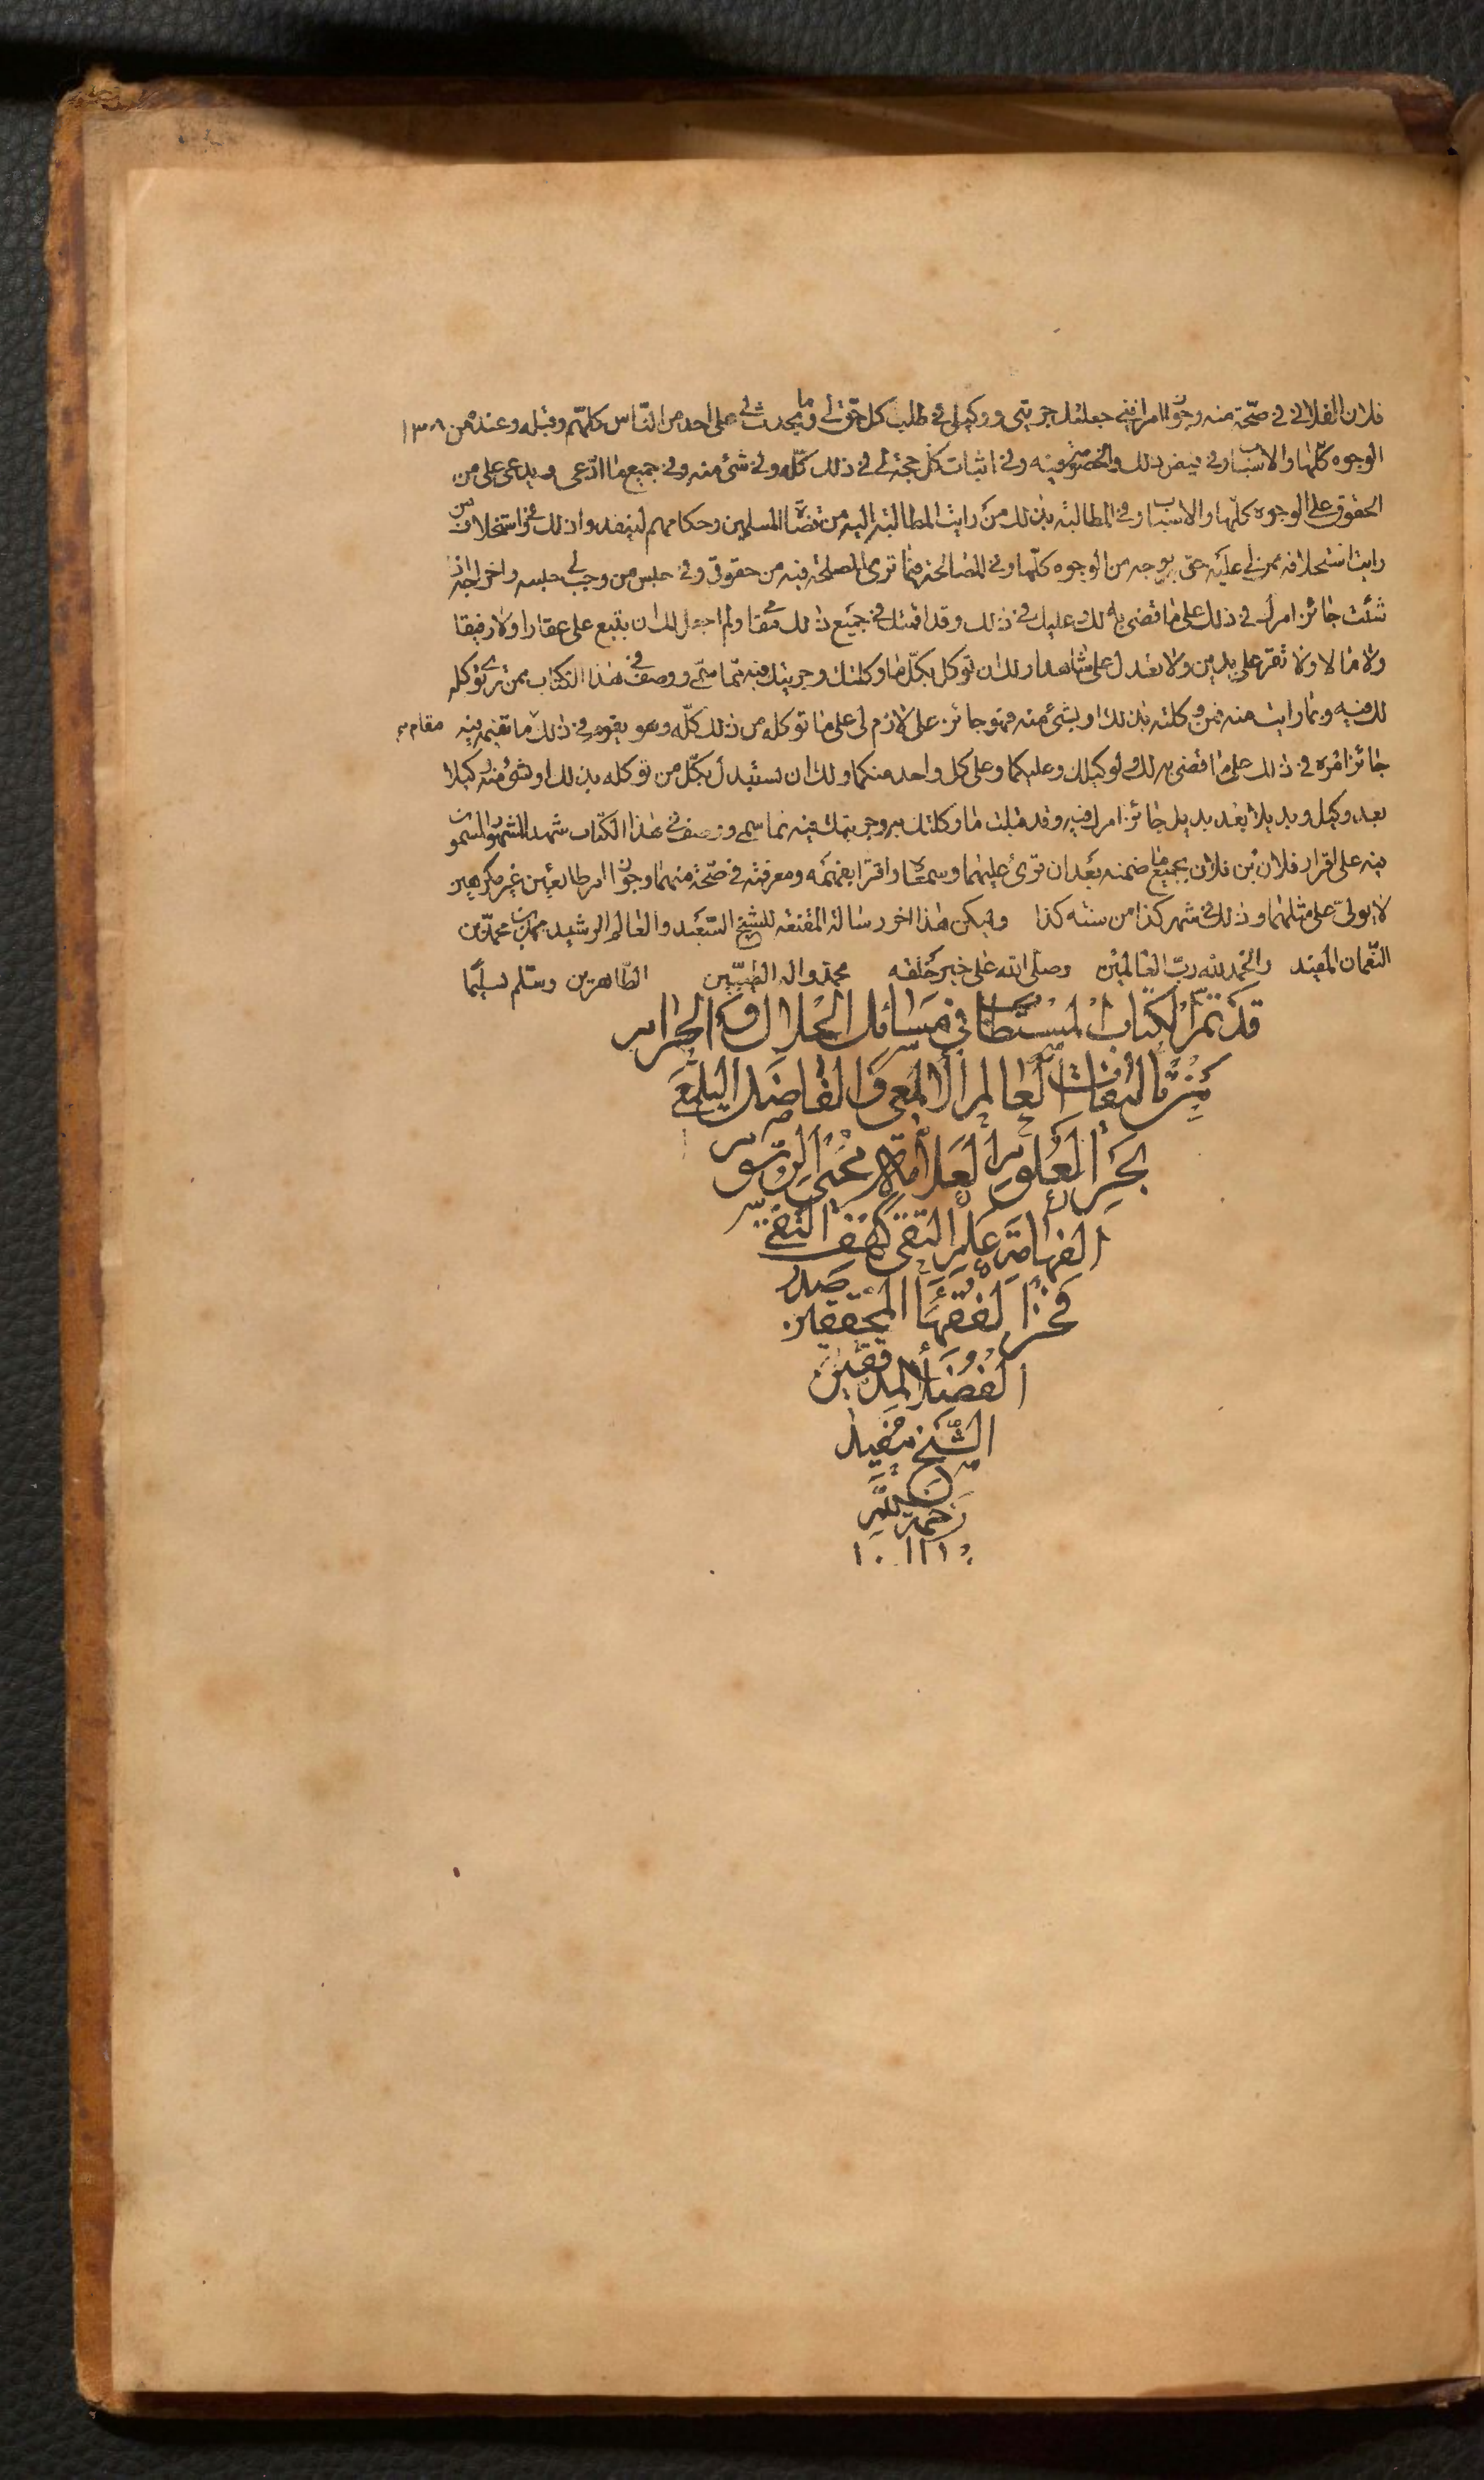 فلان الفلاني في صحّة منه وجواز امر انني جعلتك جريّتي ووكيلي في طلب كل حقّ لي وما يحدث لي على أحد من النّاس كلّهم وقبله وعنده من ١٣٠٨
الوجوه كلّها والاسباب وفي قبض ذلك والخصومة فيه وفي اثبات كلّ حجّة لي في ذلك كلّه وفي شئ منه وفي جميع ما ادّعى ويدعى علي من
الحقوق على الوجوه كلّها والاسباب وفي المطالبة بذلك من رايت المطالبة اليه من قضاة المسلمين وحكامهم وفي استحلاف من
رايت استحلافه ممن لي عليه حق بوجه من الوجوه كلّها وفي المصالحة فيما ترى المصلحة فيه من حقوقي وفي حبس من وجب لي حبسه واخراجه اذا
شئت جائز امرك في ذلك على ما قضى به لك وعليك في ذلك وقد اقمتك في جميع ذلك مقامي ولم اجعل لك ان تبيع علي عقارا ولا رقيقا
ولا مالا ولا تقرّ علي بدين ولا تعدل علي شاهدا ولك ان توكل بكلّ ما وكلتك وجريتك فيه ممّا سمّى ووصف في هذا الكتاب من ترى توكله
لك فيه وبما رايت منه فمن وكلته بذلك او بشئ منه فهو جائز علي لازم لي على ما توكله من ذلك كلّه وهو يقوم في ذلك ما تقيمه فيه مقام
جائز امره في ذلك على ما قضى به لك ولوكيلك وعليكما وعلى كل واحد منكما ولك ان تستبدل بكلّ من توكله بذلك او بشئ منه وكيلا
بعد وكيل وبديلا بعد بديل جائز امرك فيه وقد قبلت ما وكلتك به وجريتك فيه مما سمى ووصف في هذا الكتاب شهد الشهود المسمون
فيه على اقرار فلان بن فلان بجميع ما ضمنه بعد ان قرئ عليهما وسمعاه واقرا بفهمه ومعرفته في صحّة منهما وجواز امر طائعين غير مكرهين
لا يولى على مثلهما وذلك في شهر كذا من سنة كذا وليكن هذا اخر رسالة المقنعة للشيخ السعيد والعالم الرشيد محمّد بن محمّد بن
النّعمان المفيد والحمد لله ربّ العالمين وصلى الله على خير خلقه محمد واله الطيّبين الطّاهرين وسلّم تسليما
قد تمّ الكتاب المستطاب في مسائل الحلال والحرام
من تأليفات العالم الالمعي والفاضل اليلمعي
بحر العلوم العلامة محيي الرسوم
الفهامة علم التقى كهف التقي
فخر الفقهاء المحققين صدر
الفضلاء المدققين
الشّيخ مفيد
رحمه الله